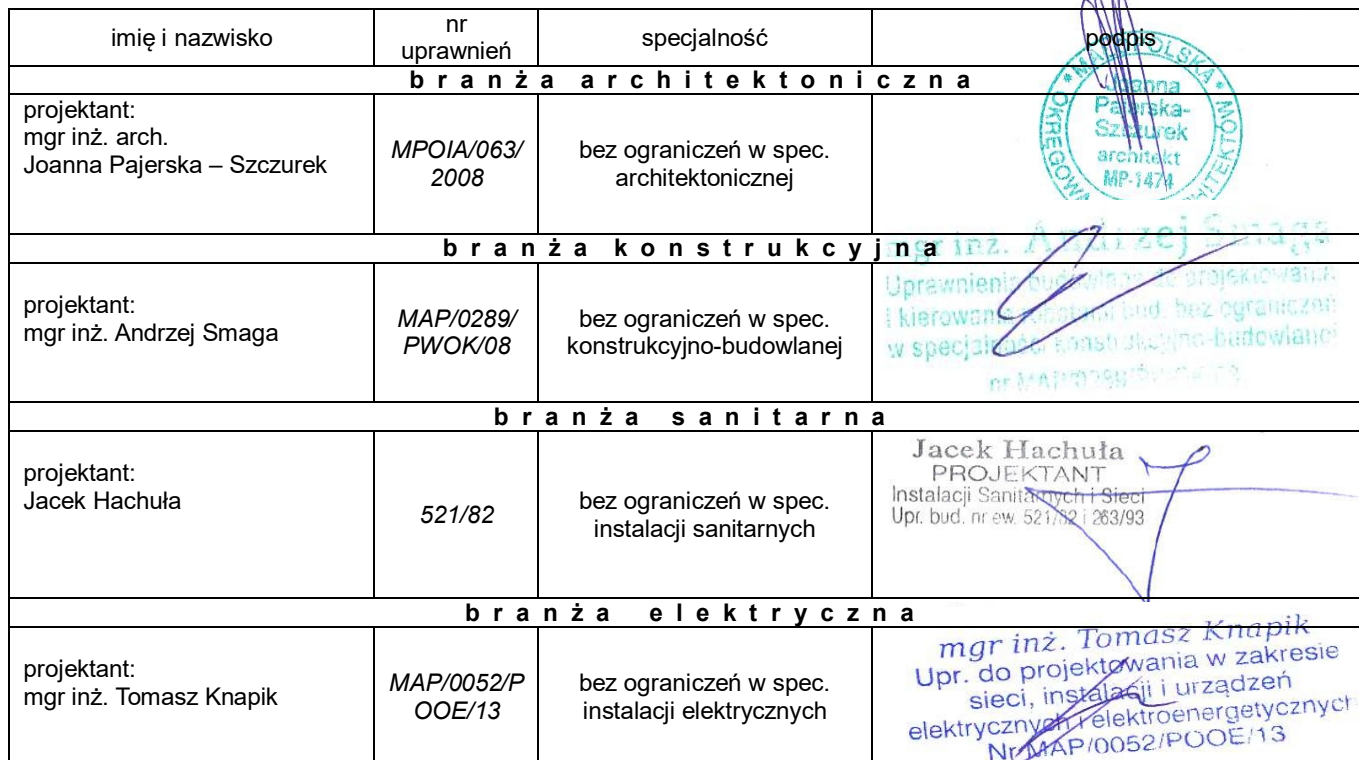 imię i nazwisko
nr
uprawnień
specjalność
podpis
branża architektoniczna
projektant:
mgr inż. arch.
Joanna Pajerska – Szczurek
MPOIA/063/
2008
bez ograniczeń w spec.
architektonicznej
MAŁOPOLSKA
OKRĘGOWA
Joanna
Pajerska-
Szczurek
architekt
MP-1474
branża konstrukcyjna
projektant:
mgr inż. Andrzej Smaga
MAP/0289/
PWOK/08
bez ograniczeń w spec.
konstrukcyjno-budowlanej
mgr inż. Andrzej Smaga
Uprawnienia budowlane do projektowania
i kierowania robotami bud. bez ograniczeń
w specjalności konstrukcyjno-budowlanej
branża sanitarna
projektant:
Jacek Hachuła
521/82
bez ograniczeń w spec.
instalacji sanitarnych
Jacek Hachuła
PROJEKTANT
Instalacji Sanitarnych i Sieci
Upr. bud. nr ew. 521/82 i 263/93
branża elektryczna
projektant:
mgr inż. Tomasz Knapik
MAP/0052/P
OOE/13
bez ograniczeń w spec.
instalacji elektrycznych
mgr inż. Tomasz Knapik
Upr. do projektowania w zakresie
sieci, instalacji i urządzeń
elektrycznych i elektroenergetycznych
Nr MAP/0052/POOE/13